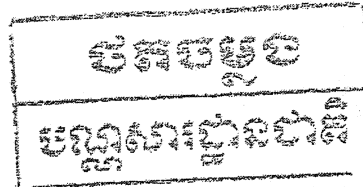 ថតចម្លង
បណ្ណសារដ្ឋានជាតិ